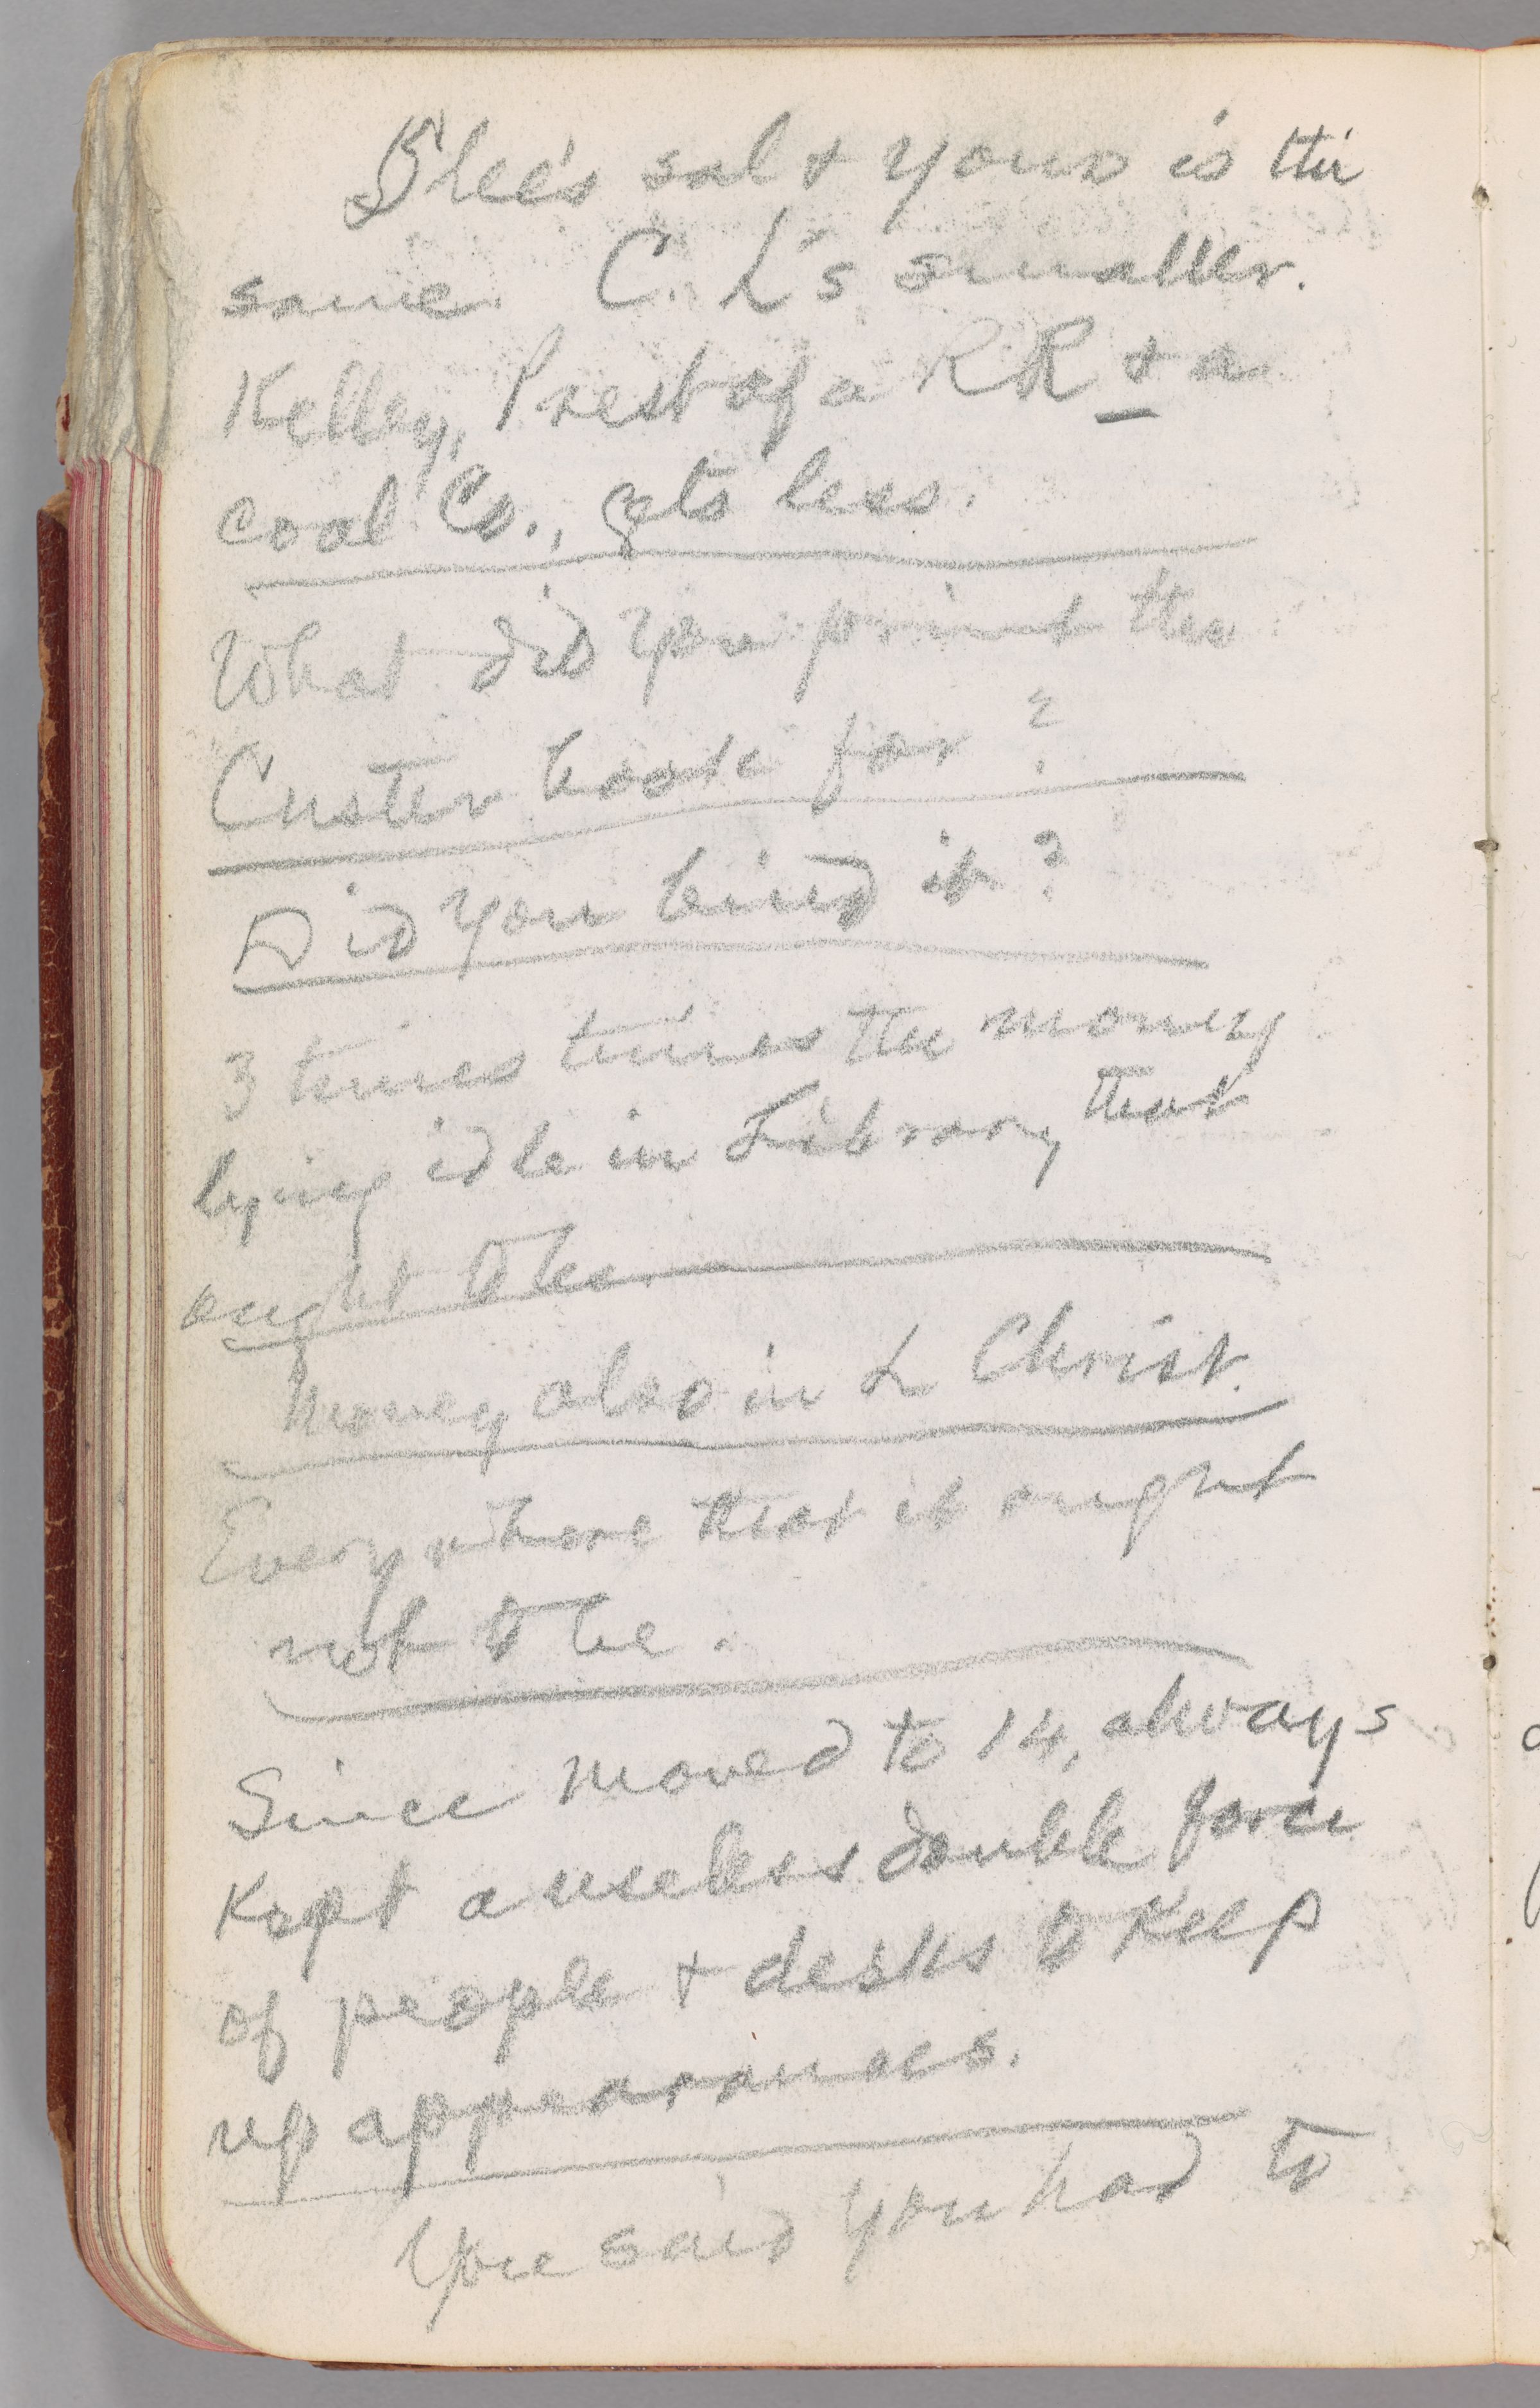 sal & yours is the
same. C. L's smaller.
Kelley, Prest of a RR & a
coal Co., gets less.
What did you print the
Custer book for?
Did you bind it?
3 times times the money
lying idle in Library that
ought to be.
Money also in L Christ.
Everywhere that it ought
not to be.
Since moved to 14, always
kept a useless double force
of people & desks to keep
up appearances.
You said you had to